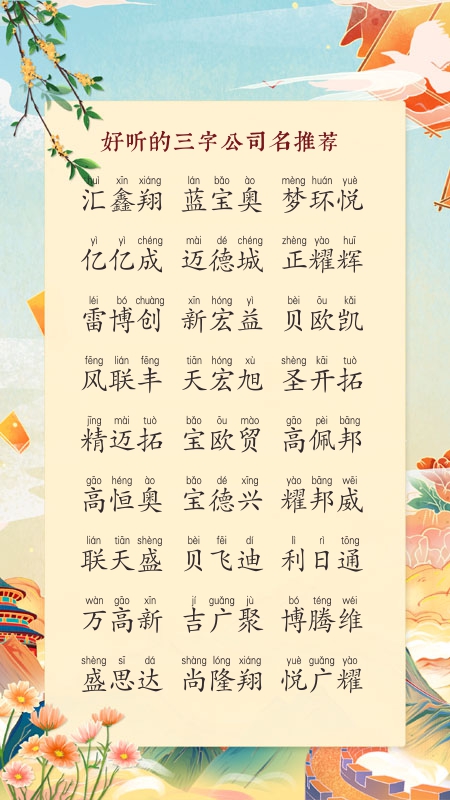 好听的三字公司名推荐
huì xīn xiáng lán bǎo ào mèng huán yuè
汇鑫翔 蓝宝奥 梦环悦
yì yì chéng mài dé chéng zhèng yào huī
亿亿成 迈德城 正耀辉
léi bó chuàng xīn hóng yì bèi ōu kǎi
雷博创 新宏益 贝欧凯
fēng lián fēng tiān hóng xù shèng kāi tuò
风联丰 天宏旭 圣开拓
jīng mài tuò bǎo ōu mào gāo pèi bāng
精迈拓 宝欧贸 高佩邦
gāo héng ào bǎo dé xīng yào bāng wēi
高恒奥 宝德兴 耀邦威
lián tiān shèng bèi fēi dí lì rì tōng
联天盛 贝飞迪 利日通
wàn gāo xīn jí guǎng jù bó téng wéi
万高新 吉广聚 博腾维
shèng sī dá shàng lóng xiáng yuè guǎng yào
盛思达 尚隆翔 悦广耀